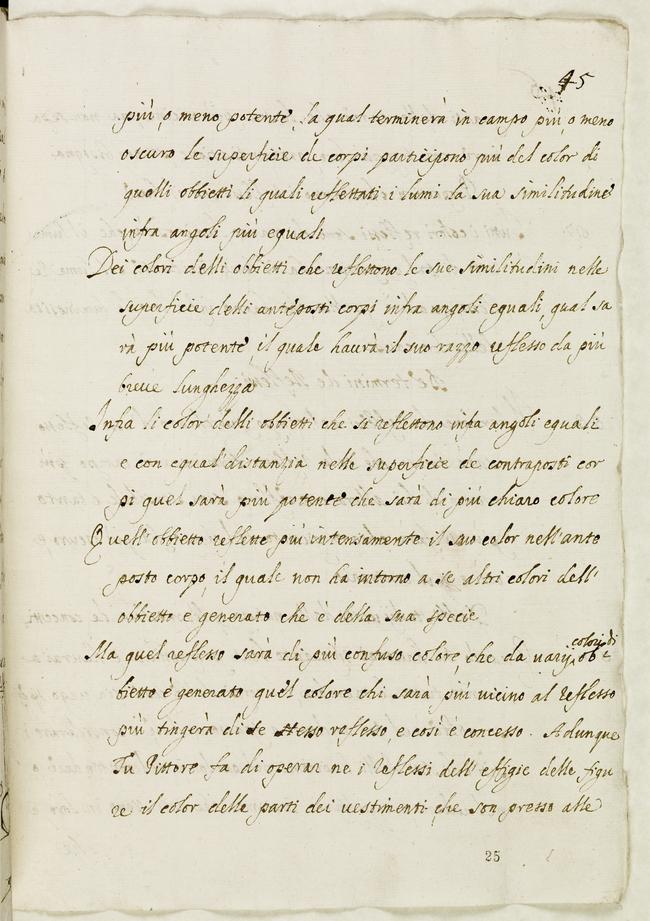 45
più, o meno potente, la qual terminerà in campo più, o meno
oscuro le superficie de corpi participono più del color di
quelli obbietti li quali reflettati i lumi la sua similitudine
infra angoli più equali
Dei colori delli obbietti che reflettono le sue similitudini nelle
superficie delli anteposti corpi infra angoli equali, qual sa
rà più potente il quale haurà il suo razzo reflesso da più
breue lunghezza
Infra li color delli obbietti che si reflettono infra angoli equali
e con equal distanzia nelle superficie de contraposti cor
pi quel sarà più potente che sarà di più chiaro colore
Quell' obbietto reflette più intensamente il suo color nell'ante
posto corpo, il quale non ha intorno a se altri colori dell'
obbietto e generato che è della sua specie
Ma quel reflesso sarà di più confuso colore, che da uarij colori di ob
bietto è generato quel colore chi sarà più vicino al reflesso
più tingerà di se stesso reflesso, e così è concesso. Adunque
Tu Pittore fa di operar ne i reflessi dell' effigie delle figu
re il color delle parti dei uestimenti che son presso alle
25